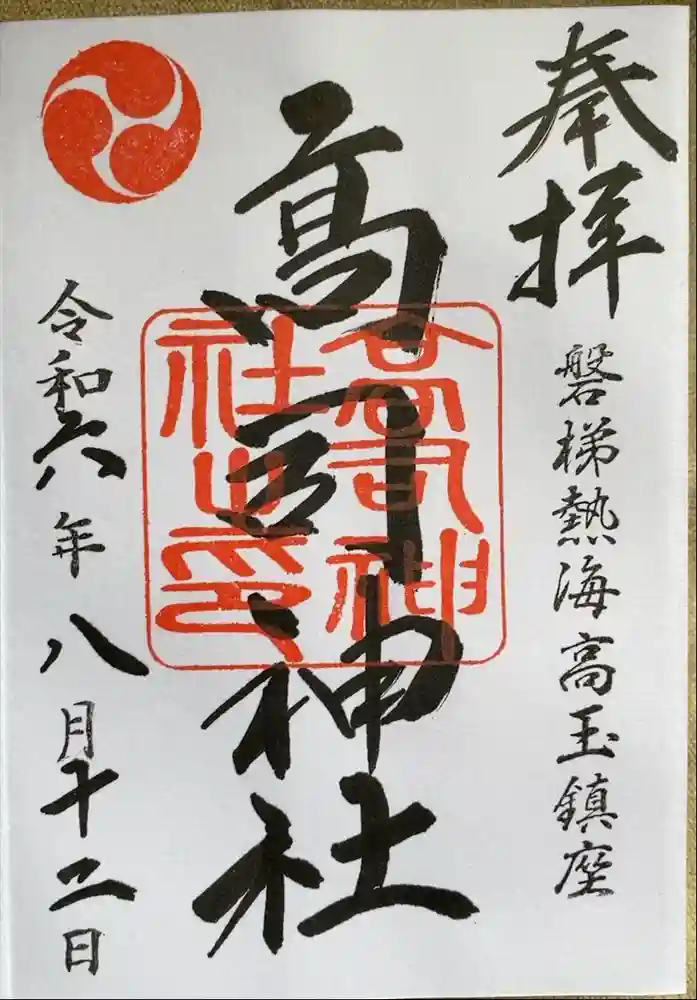 奉拝
磐梯熱海高玉鎮座
高司神社
高司神
社之印
令和六年八月十二日